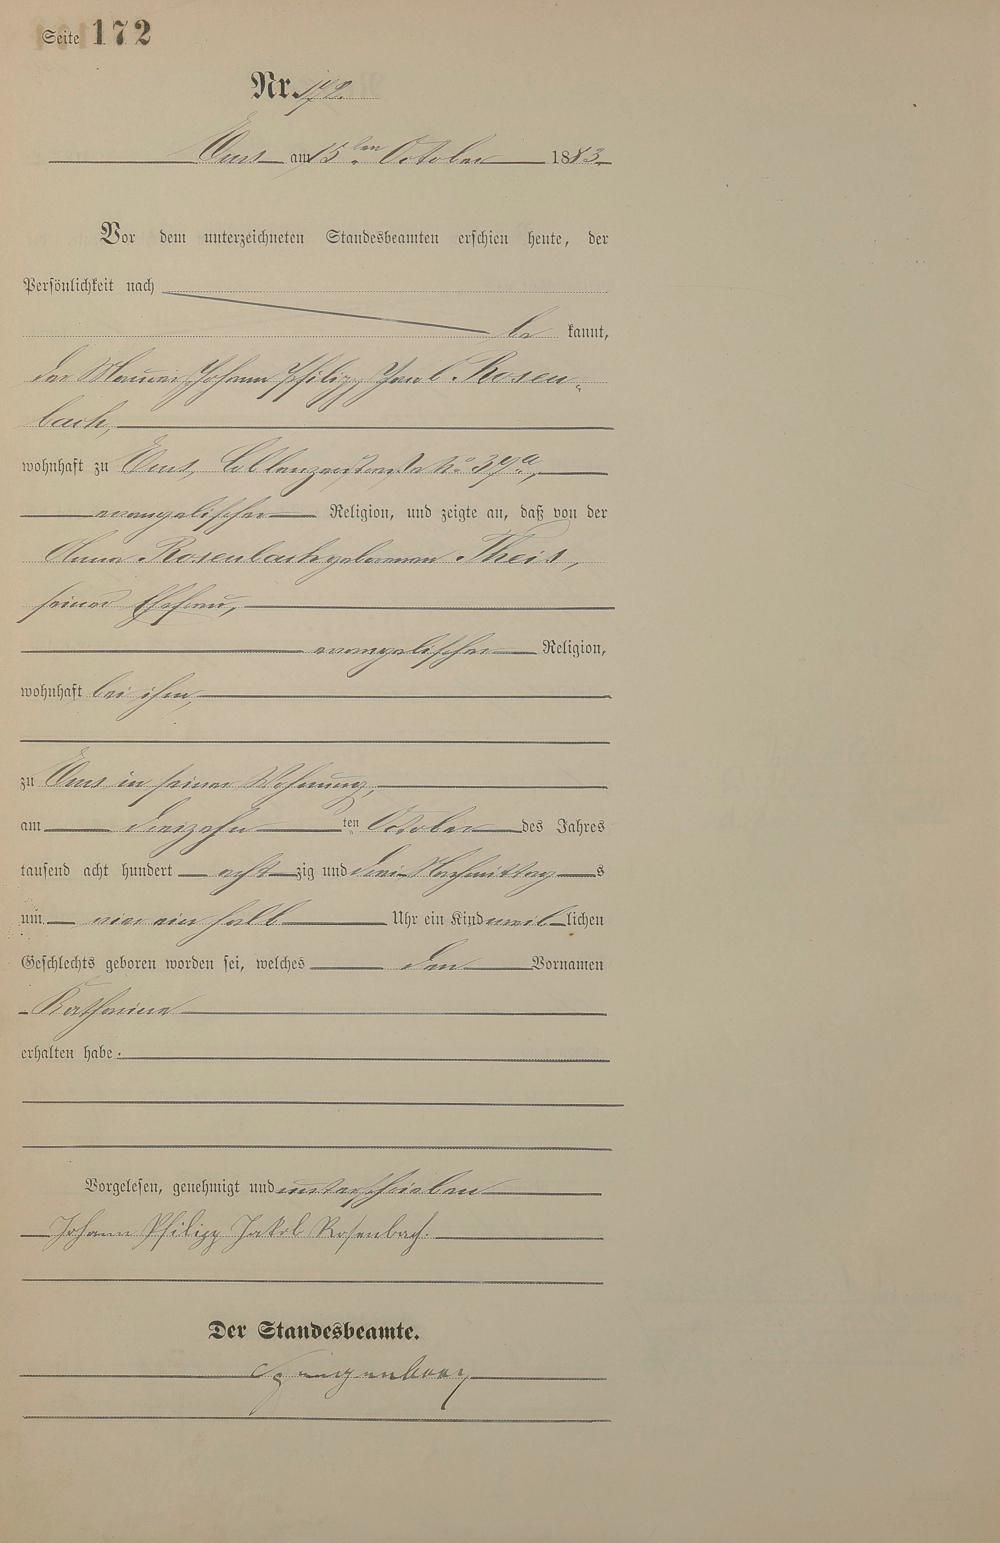 Seite 172
Nr. 172.
Ems am 15ten October 1883.
Vor dem unterzeichneten Standesbeamten erschien heute, der
Persönlichkeit nach
be kannt,
der Maurer Johann Philipp Jacob Rosen-
bach,
wohnhaft zu Ems, Coblenzerstraße No 39a,
evangelischer Religion, und zeigte an, daß von der
Anna Rosenbach geborenen Theis,
seiner Ehefrau,
evangelischer Religion,
wohnhaft bei ihm,
zu Ems in seiner Wohnung,
am dreizehn ten October des Jahres
tausend acht hundert acht zig und drei Nachmittag s
um vier ein halb Uhr ein Kind weib lichen
Geschlechts geboren worden sei, welches den Vornamen
Katharina
erhalten habe.
Vorgelesen, genehmigt und unterschrieben
Johann Philipp Jakob Rosenbach.
Der Standesbeamte.